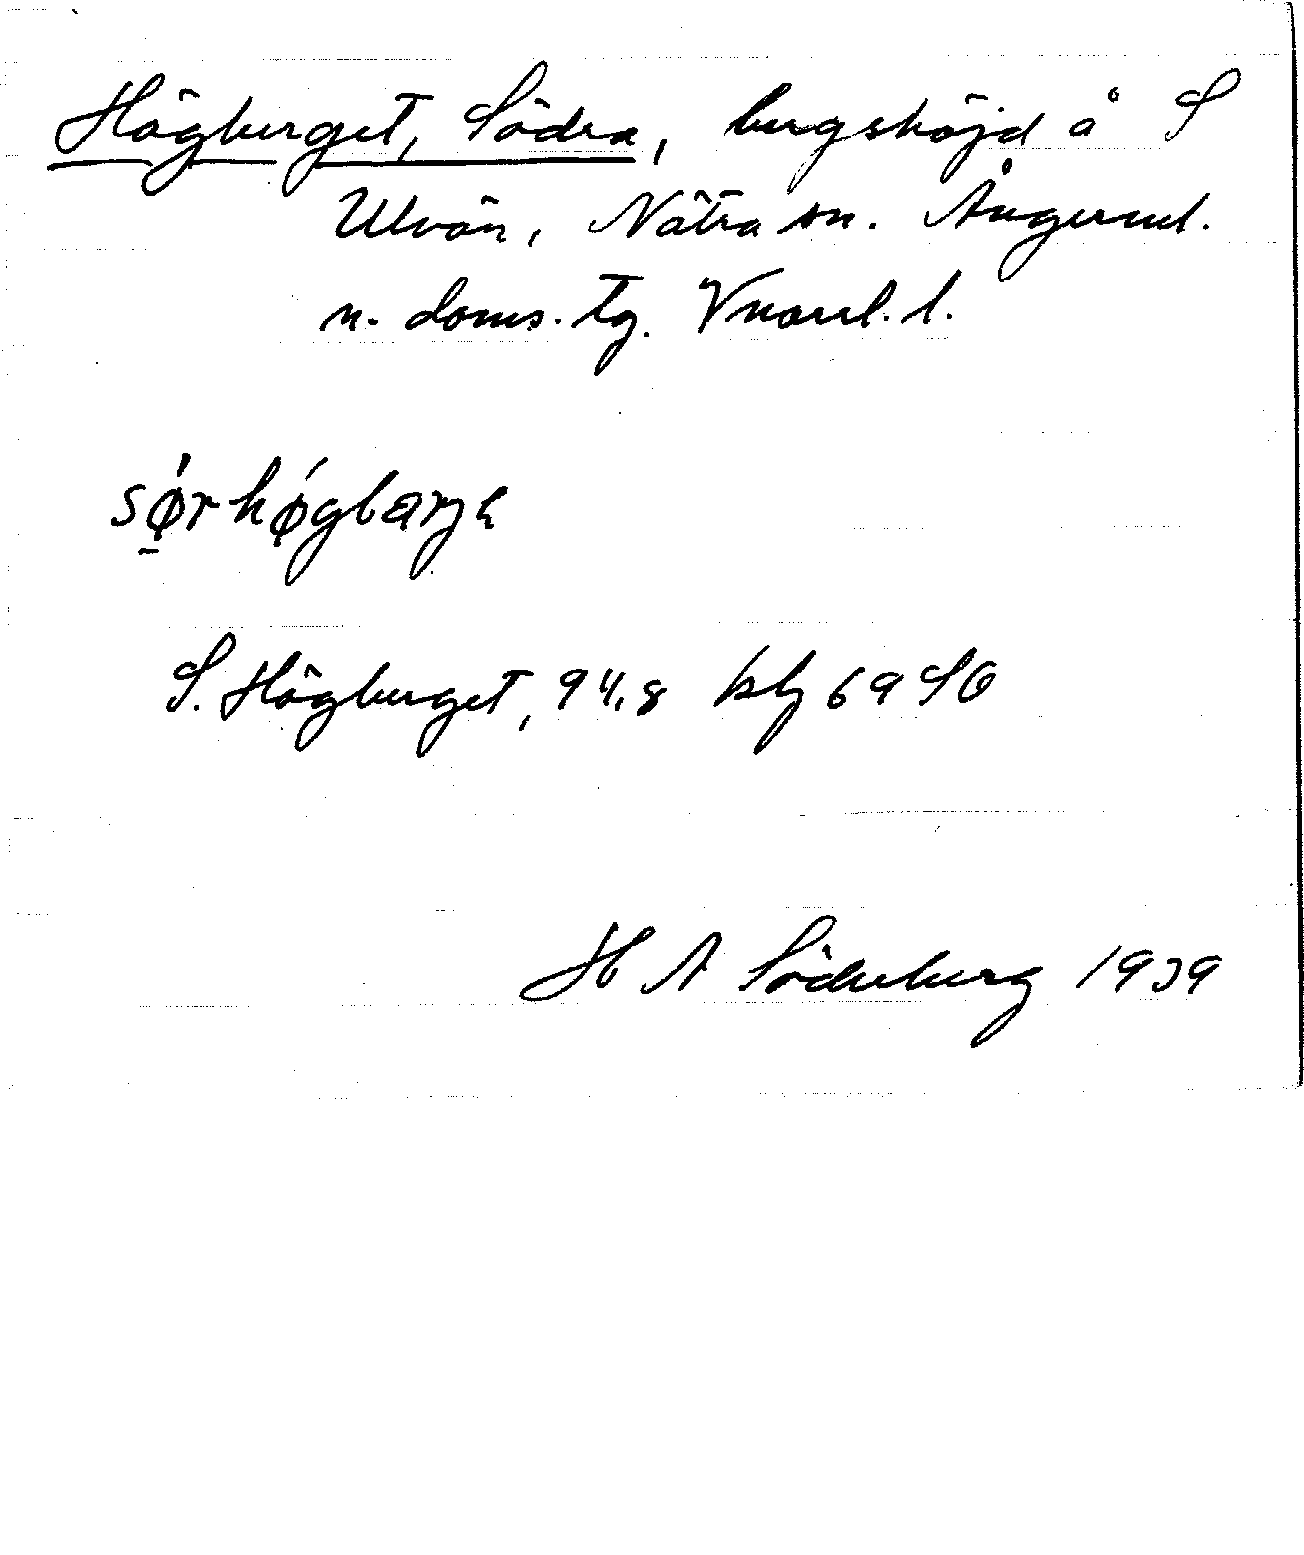 Högberget, Södra, bergshöjd å S
Ulvön, Nätra sn. Ångerml.
n. doms. tg. Vnorrl. l.
sǿ̱rhǿgbærjɛ
S. Högberget, 94,8 kbl 69 SO
H A Söderberg 1939